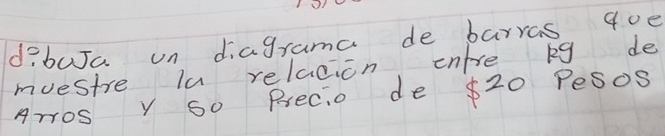 dibuJa un diagrama de barras que
muestre la relación entre kg de
Arros y so Precio de $20 Pesos